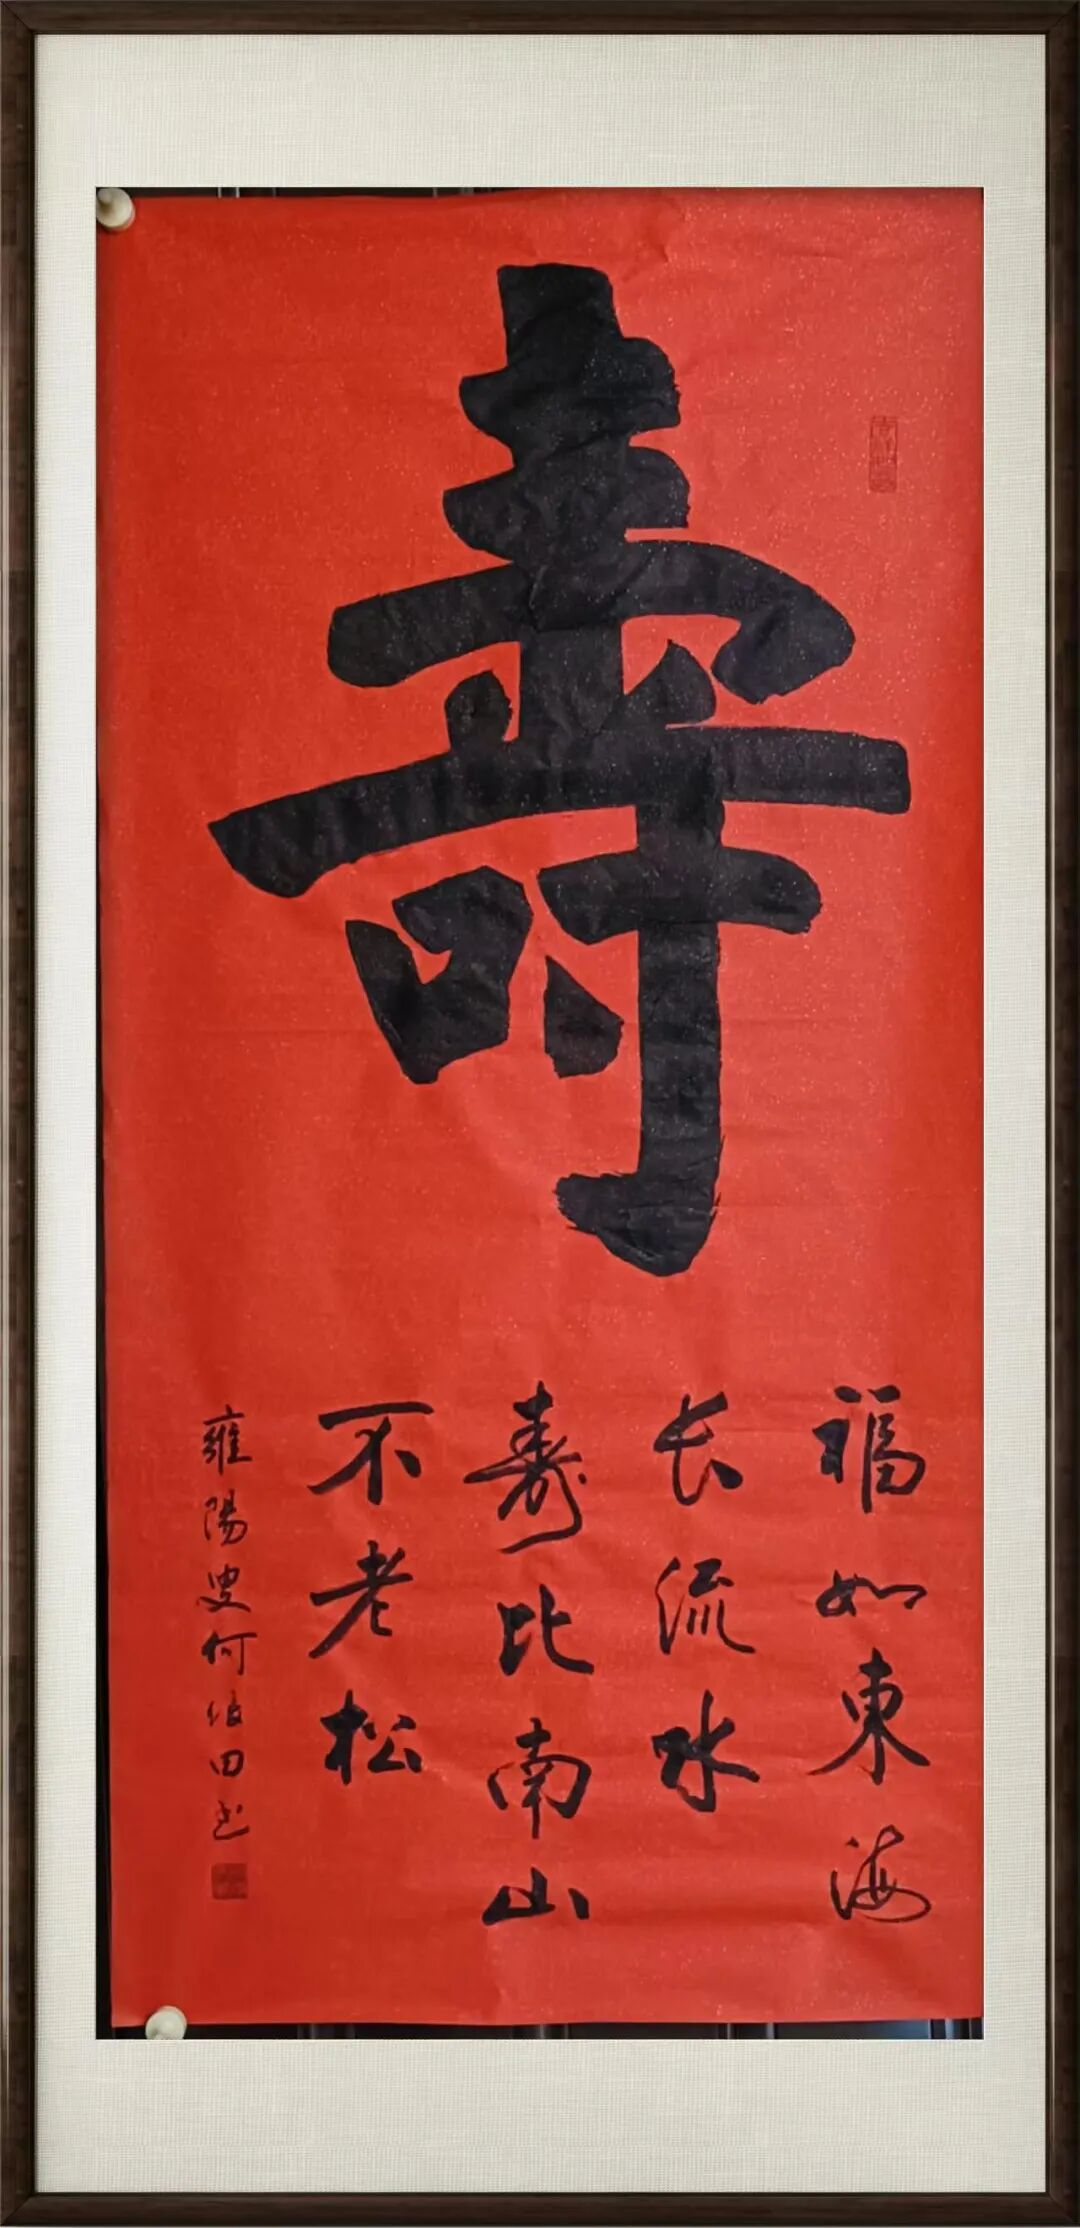 壽
福如東海
长流水
壽比南山
不老松
雍陽叟何伯田书